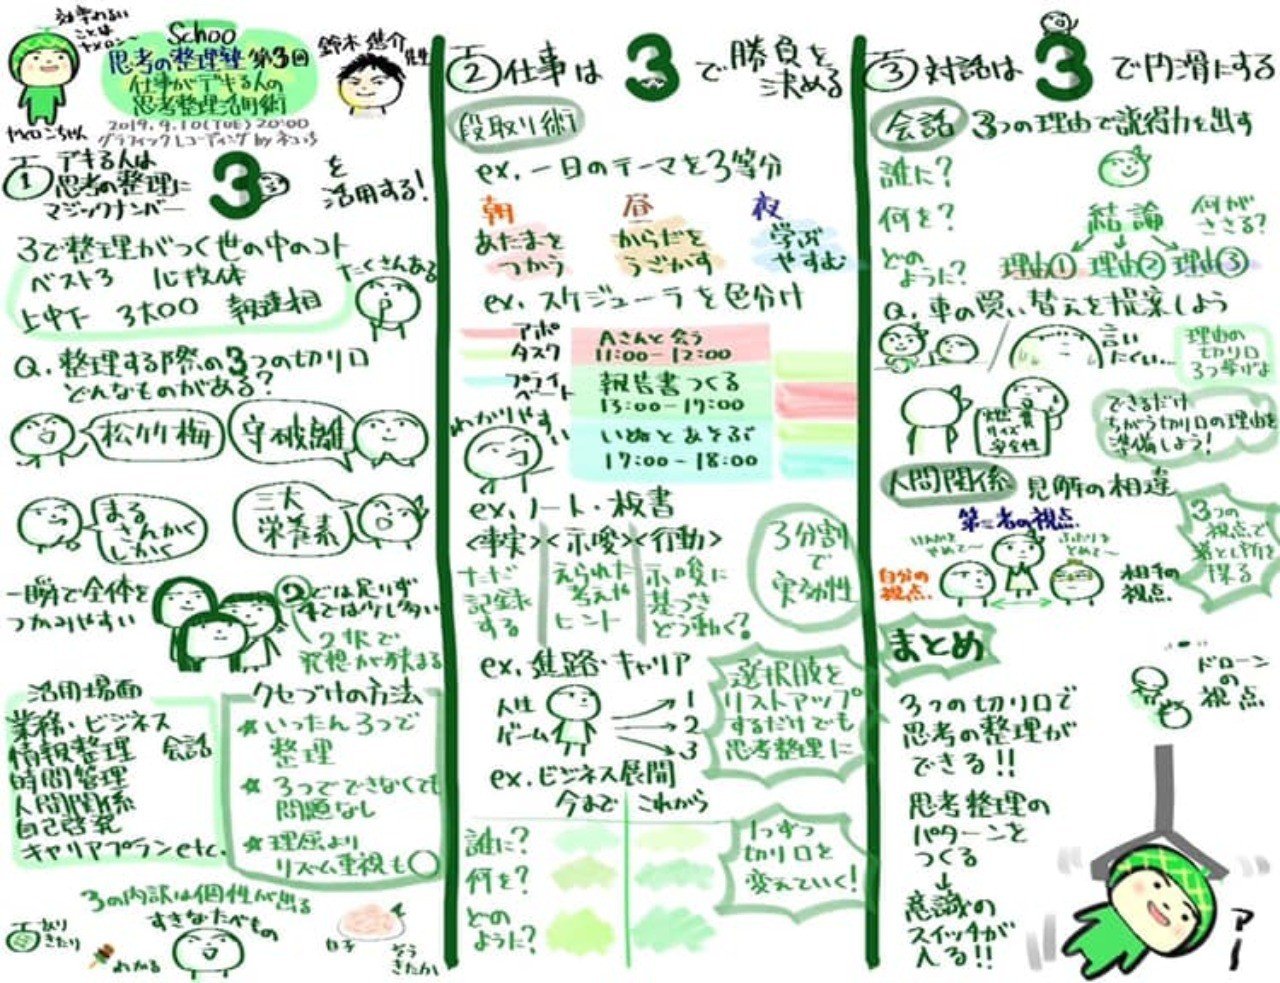 効率わるい
ことは
ヤメローン
Schoo
思考の整理塾 第3回
仕事がデキる人の
思考整理活用術
鈴木進介
先生
2019.9.10(TUE)20:00
グラフィックレコーディング by
ヤメロンちゃん
① デキる人は
思考の整理に
マジックナンバー
3
を
活用する!
3で整理がつく世の中のコト
ベスト3 心技体
上中下 3大○○ 報連相
たくさんある
Q. 整理する際の3つの切り口
どんなものがある?
松竹梅
守破離
まる
さんかく
しかく
三大
栄養素
一瞬で全体を
つかみやすい
②では足りず
4では少し多い
2択で
発想が狭まる
活用場面
業務・ビジネス
情報整理 会話
時間管理
人間関係
自己啓発
キャリアプラン etc.
クセづけの方法
☆いったん3つで
整理
☆3つでできなくても
問題なし
☆理屈より
リズム重視も○
3の内訳は個性が出る
すきなたべもの
わかる
② 仕事は 3 で勝負を
決める
段取り術
ex. 一日のテーマを3等分
朝
昼
夜
あたまを
つかう
からだを
うごかす
学ぶ
やすむ
ex. スケジューラを色分け
アポ
タスク
プライ
ベート
Aさんと会う
11:00-12:00
報告書つくる
13:00-17:00
いぬとあそぶ
17:00-18:00
わかりやすい
ex. ノート・板書
<事実><示唆><行動>
ただ
記録
する
えられた
考えや
ヒント
示唆に
基づき
どう動く?
3分割
で
実効性
ex. 進路・キャリア
人生
ゲーム
1
2
3
選択肢を
リストアップ
するだけでも
思考整理に
ex. ビジネス展開
今まで これから
誰に?
何を?
どの
ように?
1つずつ
切り口を
変えていく!
③ 対話は 3 で円滑にする
会話 3つの理由で説得力を出す
誰に?
何を?
どの
ように?
結論
何が
ささる?
理由① 理由② 理由③
Q. 車の買い替えを提案しよう
言い
にくい…
理由の
切り口
3つ挙げよ
燃費
サイズ
安全性
できるだけ
ちがう切り口の理由を
準備しよう!
人間関係 見解の相違
第三者の視点
けんかを
やめて〜
ふたりを
とめて〜
自分の
視点
相手の
視点
3つの
視点で
落とし所を
探る
まとめ
3つの切り口で
思考の整理が
できる!!
思考整理の
パターンを
つくる
↓
意識の
スイッチが
入る!!
ドローン
の
視点
アー